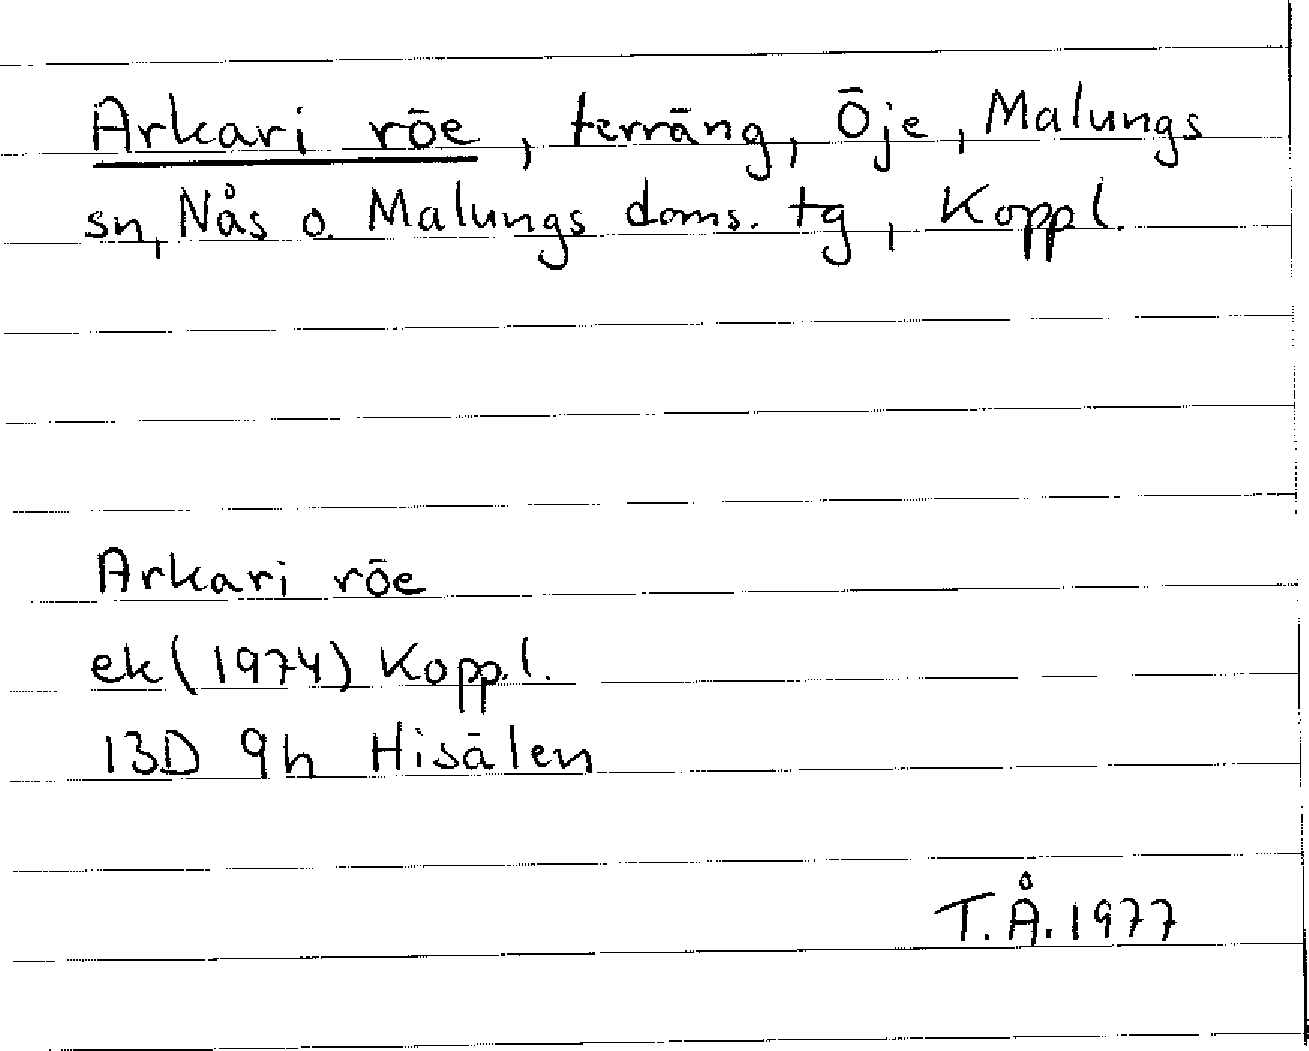 Arkari röe, terräng, Öje, Malungs
sn, Nås o. Malungs doms. tg, Koppl.
Arkari röe
ek (1974) Kopp.l.
13D 9h Hisälen
T.Å. 1977